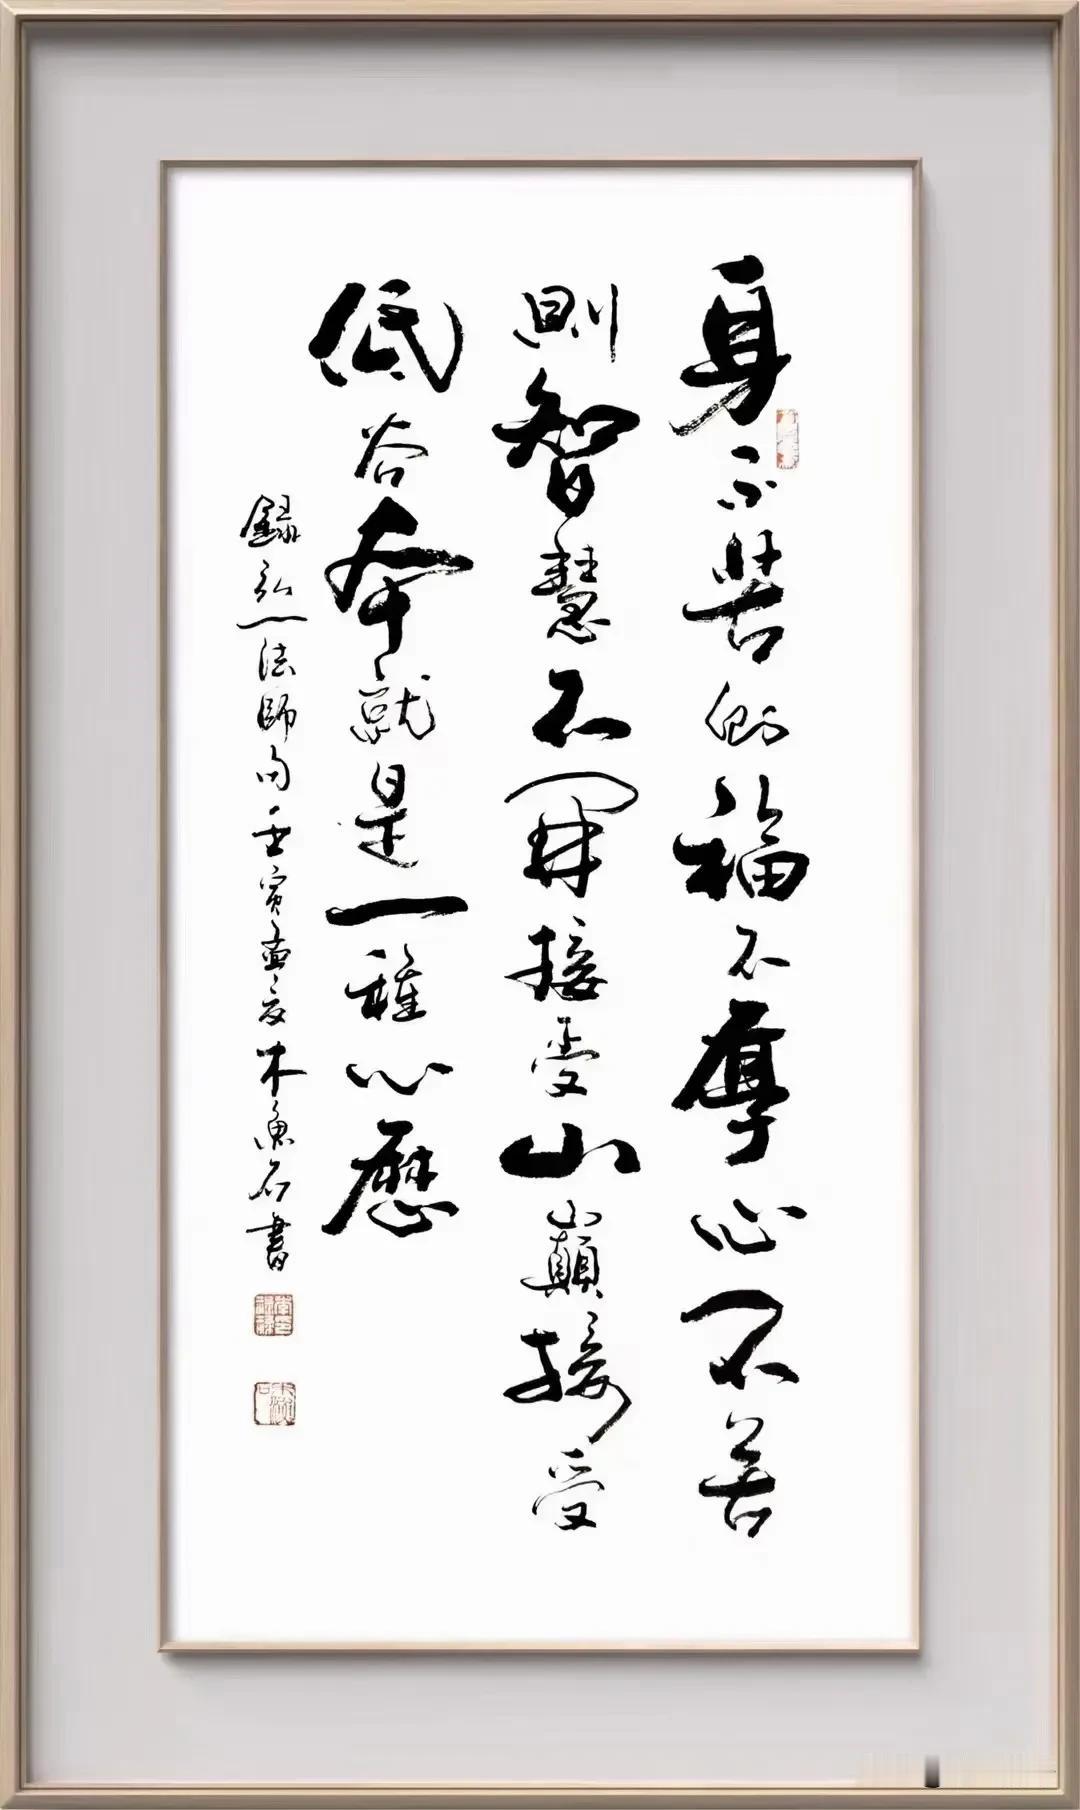 身不苦則福不厚心不苦
則智慧不開接受山巔接受
低谷本就是一種心歷
錄弘一法師句壬寅孟夏木魚石書